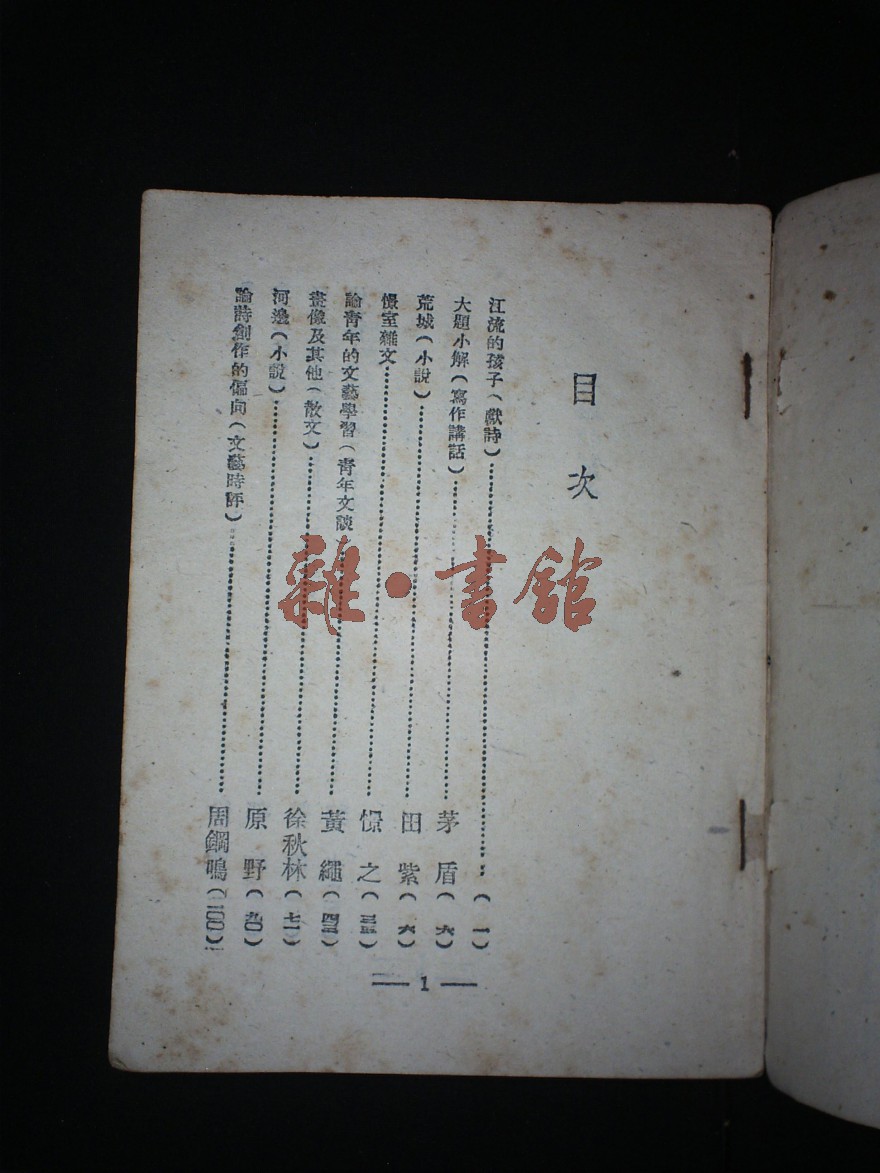 目次
江流的孩子(獻詩)……(一)
大題小解(寫作講話)……茅盾(六)
荒城(小說)……田紫(六)
憬室雜文……憬之(三三)
論青年的文藝學習(青年文談……黃繩(四三)
畫像及其他(散文)……徐秋林(七一)
河邊(小說)……原野(九〇)
論詩創作的偏向(文藝時評)……周鋼鳴(一〇〇)
— 1 —
雜·書館